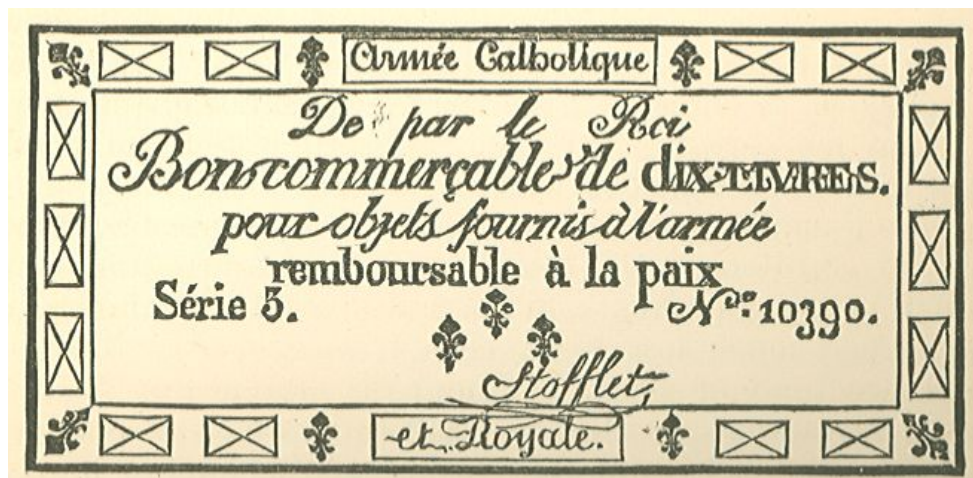 Armée Catholique
De par le Roi
Bon commerçable de dix LIVRES.
pour objets fournis à l'armée
remboursable à la paix
Série 5. Nos: 10390.
Stofflet,
et Royale.